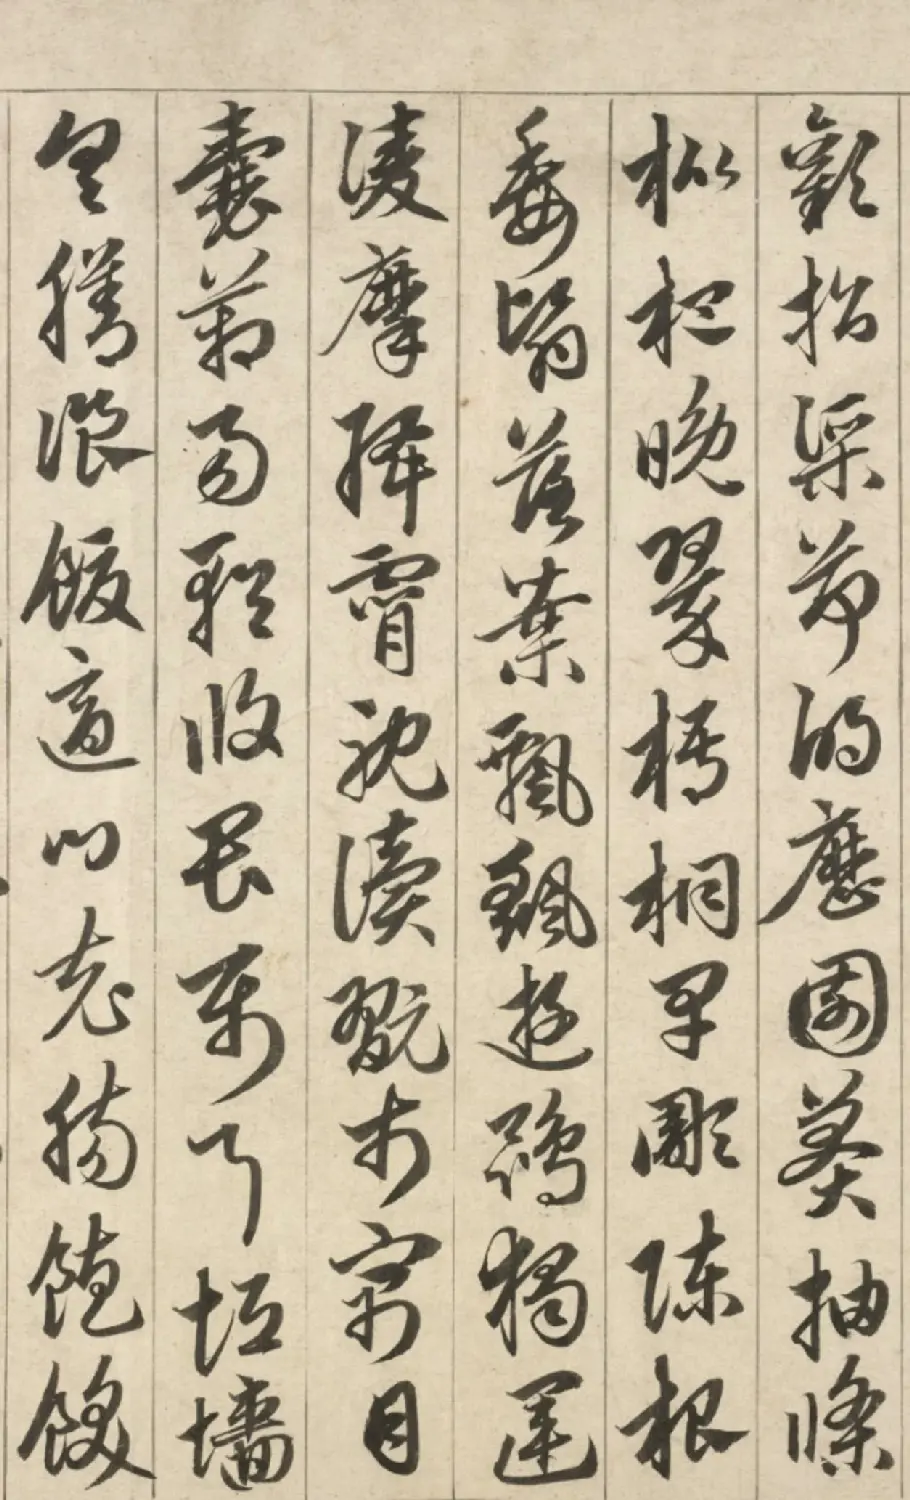 歡招渠荷的歷園莽抽條
枇杷晚翠梧桐早彫陳根
委翳落葉飄颻遊鵾獨運
淩摩絳霄耽讀翫市寓目
囊箱易輶攸畏屬耳垣墻
具膳飡飯適口充腸飽飫